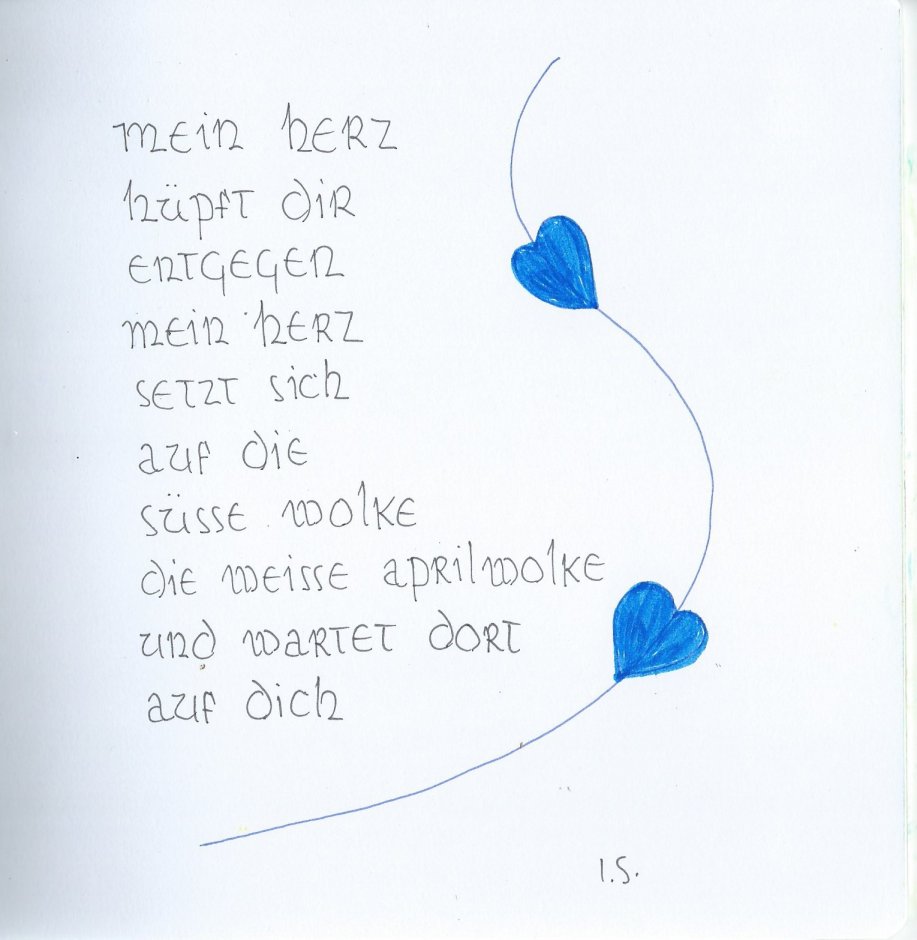 mein herz
hüpft dir
entgegen
mein herz
setzt sich
auf die
süsse wolke
die weisse aprilwolke
und wartet dort
auf dich
I.S.